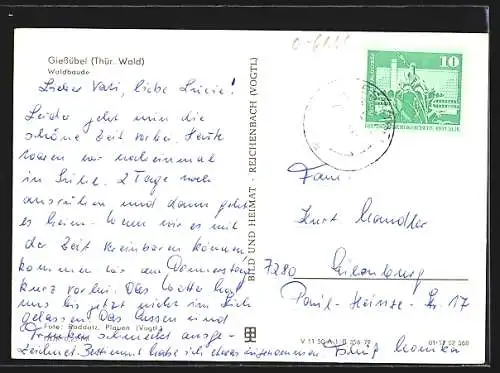 Gießübel (Thür. Wald)
Waldbaude
Lieber Vati, liebe Lucie!
Leider geht nun die
schöne Zeit vorbei. Heute
waren wir noch einmal
in Suhl. 2 Tage noch
ausruhen und dann geht
es heim. Wenn wir es mit
der Zeit vereinbaren können
kommen wir am Donnerstag
kurz vorbei. Das Wetter hat
uns bis jetzt nicht im Stich
gelassen. Das Essen und
Trinken schmeckt ausge-
zeichnet. Bestimmt habe ich etwas zugenommen
Foto: Raddatz, Plauen (Vogtl.)
BILD UND HEIMAT · REICHENBACH (VOGTL)
10
Fam.
Kurt
7280 Eilenburg
Paul-Heinze-Str. 17
01 12 52 068
Monika